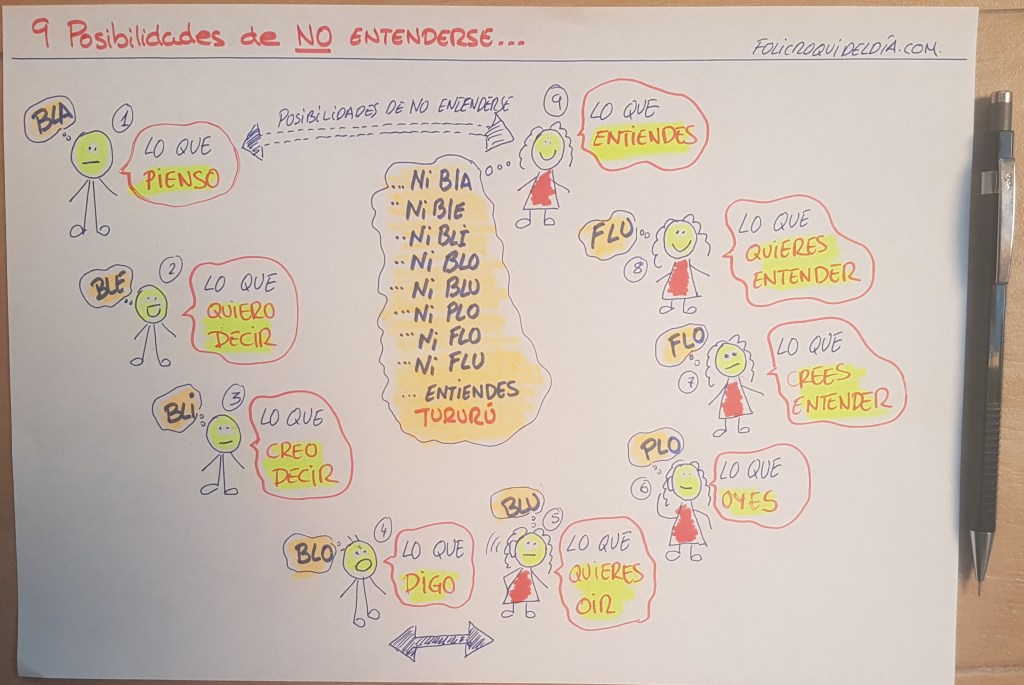 9 Posibilidades de NO ENTENDERSE...
FOLICROQUIDELDÍA.COM.
BLA
1
LO QUE
PIENSO
POSIBILIDADES DE NO ENTENDERSE
9
LO QUE
ENTIENDES
... Ni BlA
.. Ni BlE
... Ni BLi
... Ni BLO
... Ni BLU
... Ni PLO
... Ni FLO
... Ni FLU
... ENTIENDES
TURURÚ
BLE
2
LO QUE
QUIERO
DECIR
BLi
3
LO QUE
CREO
DECIR
BLO
4
LO QUE
DIGO
BLU
5
LO QUE
QUIERES
OIR
PLO
6
LO QUE
OYES
FLO
7
LO QUE
CREES
ENTENDER
FLU
8
LO QUE
QUIERES
ENTENDER